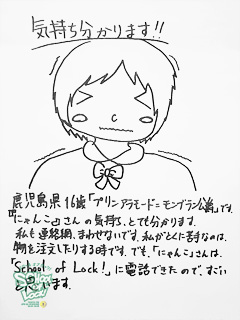 気持ち分かります!!
鹿児島県16歳「プリンアラモード=モンブラン公爵」です。
「にゃんこ」さんの気持ち、とても分かります。
私も連絡網、まわせないです。私がとくに苦手なのは、
物を注文したりする時です。でも、「にゃんこ」さんは、
「School of Lock!」に電話できたので、すごい
と思います。